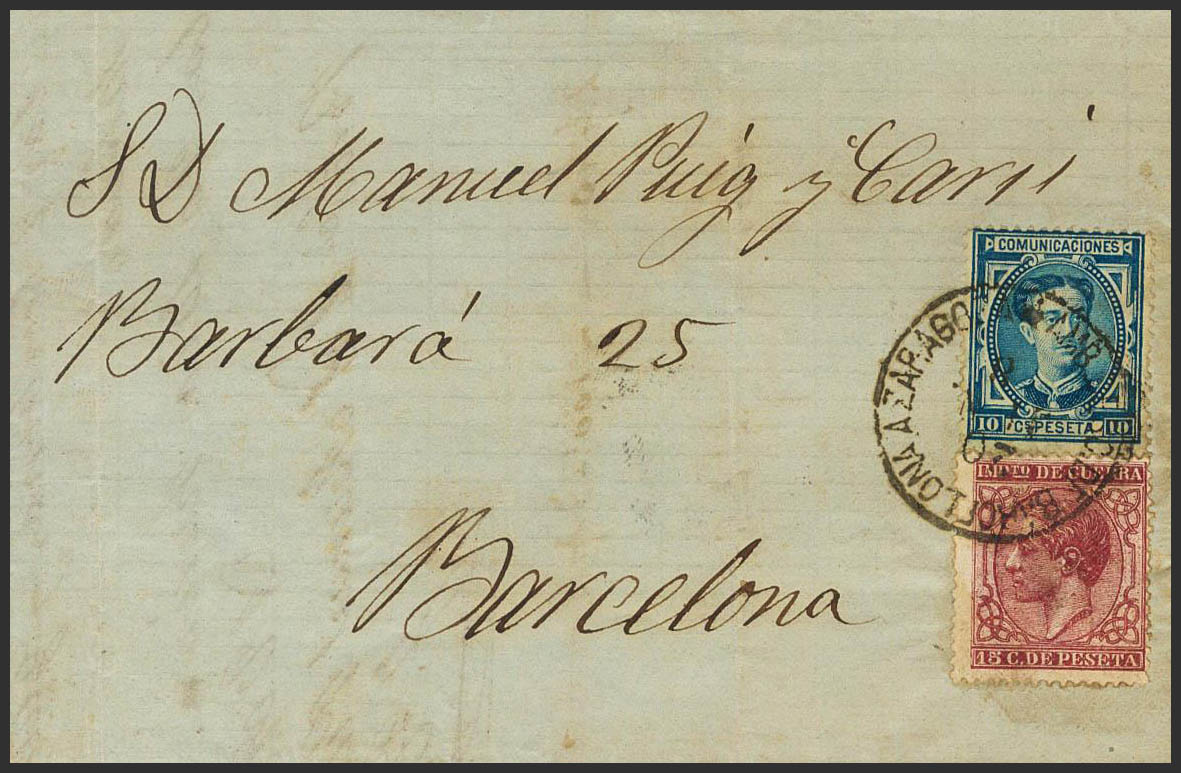 S D Manuel Puig y Carsi
Barbará 25
Barcelona
COMUNICACIONES
10 CS PESETA 10
BARCELONA A ZARAGO
IMPTO DE GUERRA
15 C. DE PESETA